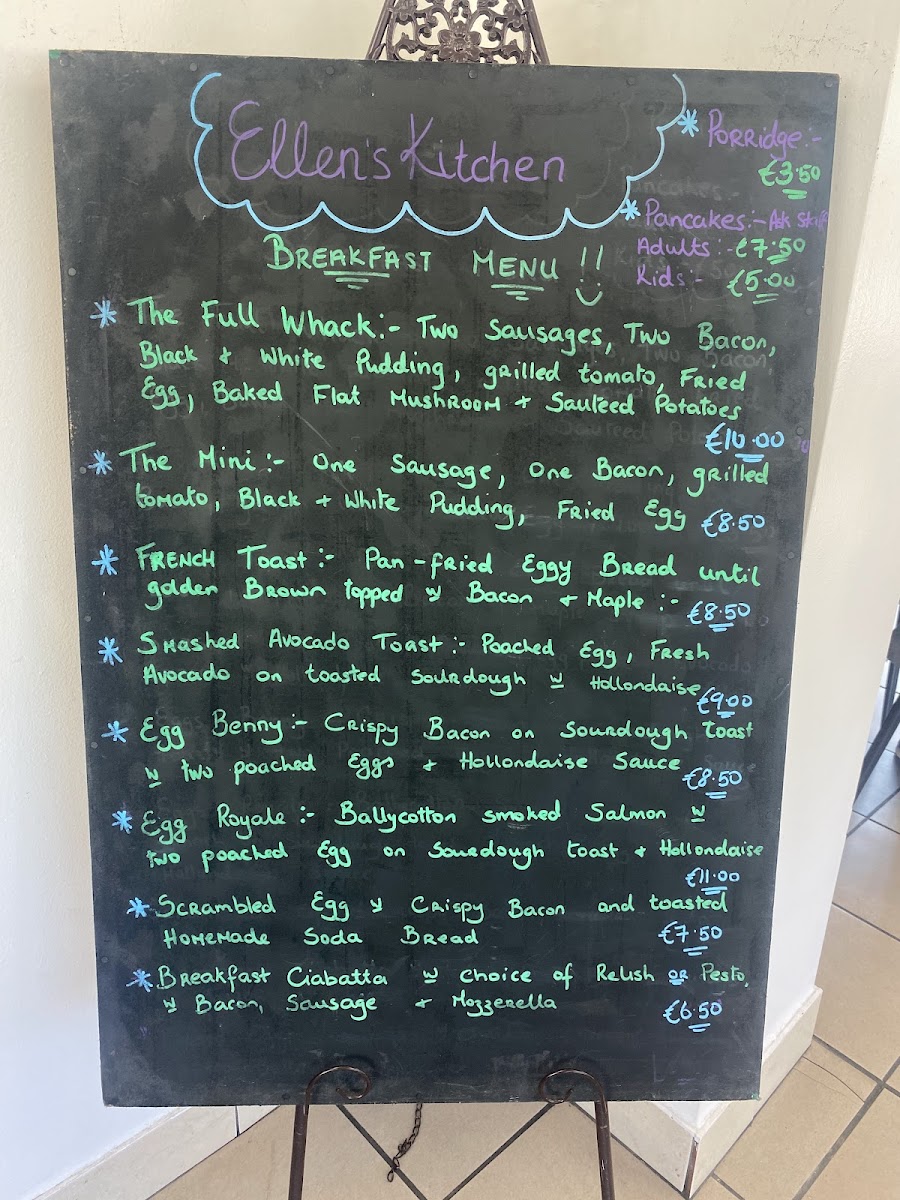 Ellen's Kitchen
* Porridge:-
€3.50
* Pancakes:- Ask Staff
Adults:- €7.50
Kids:- €5.00
BREAKFAST MENU !!
* The Full Whack:- Two Sausages, Two Bacon,
Black + White Pudding, grilled tomato, Fried
Egg, Baked Flat Mushroom + Sauteed Potatoes
€10.00
* The Mini:- One Sausage, One Bacon, grilled
tomato, Black + White Pudding, Fried Egg €8.50
* French Toast:- Pan-fried Eggy Bread until
golden Brown topped w Bacon + Maple:-
€8.50
* Smashed Avocado Toast:- Poached Egg, Fresh
Avocado on toasted sourdough w Hollondaise
€9.00
* Egg Benny:- Crispy Bacon on Sourdough toast
w two poached Eggs + Hollondaise Sauce
€8.50
* Egg Royale:- Ballycotton smoked Salmon w
two poached Egg on Sourdough toast + Hollondaise
€11.00
* Scrambled Egg w Crispy Bacon and toasted
Homemade Soda Bread €7.50
* Breakfast Ciabatta w choice of Relish OR Pesto,
w Bacon, Sausage + Mozzerella €6.50